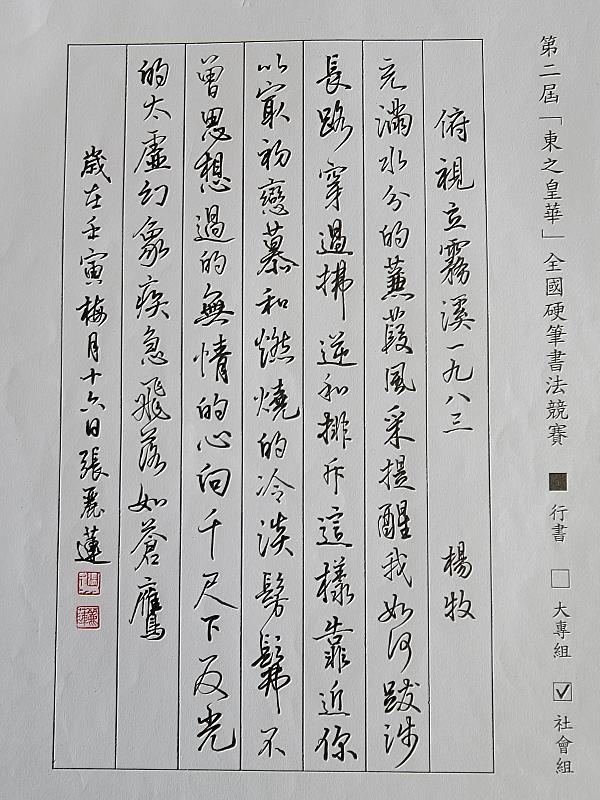 第二屆「東之皇華」全國硬筆書法競賽 行書 大專組 社會組
俯視立霧溪一九八三 楊牧
充滿水分的蒹葭風采提醒我如何跋涉
長路穿過拂逆和排斥這樣靠近你
以最初戀慕和燃燒的冷淡髣髴不
曾思想過的無情的心向千尺下反光
的太虛幻象疾急飛落如蒼鷹
歲在壬寅梅月十六日張麗蓮